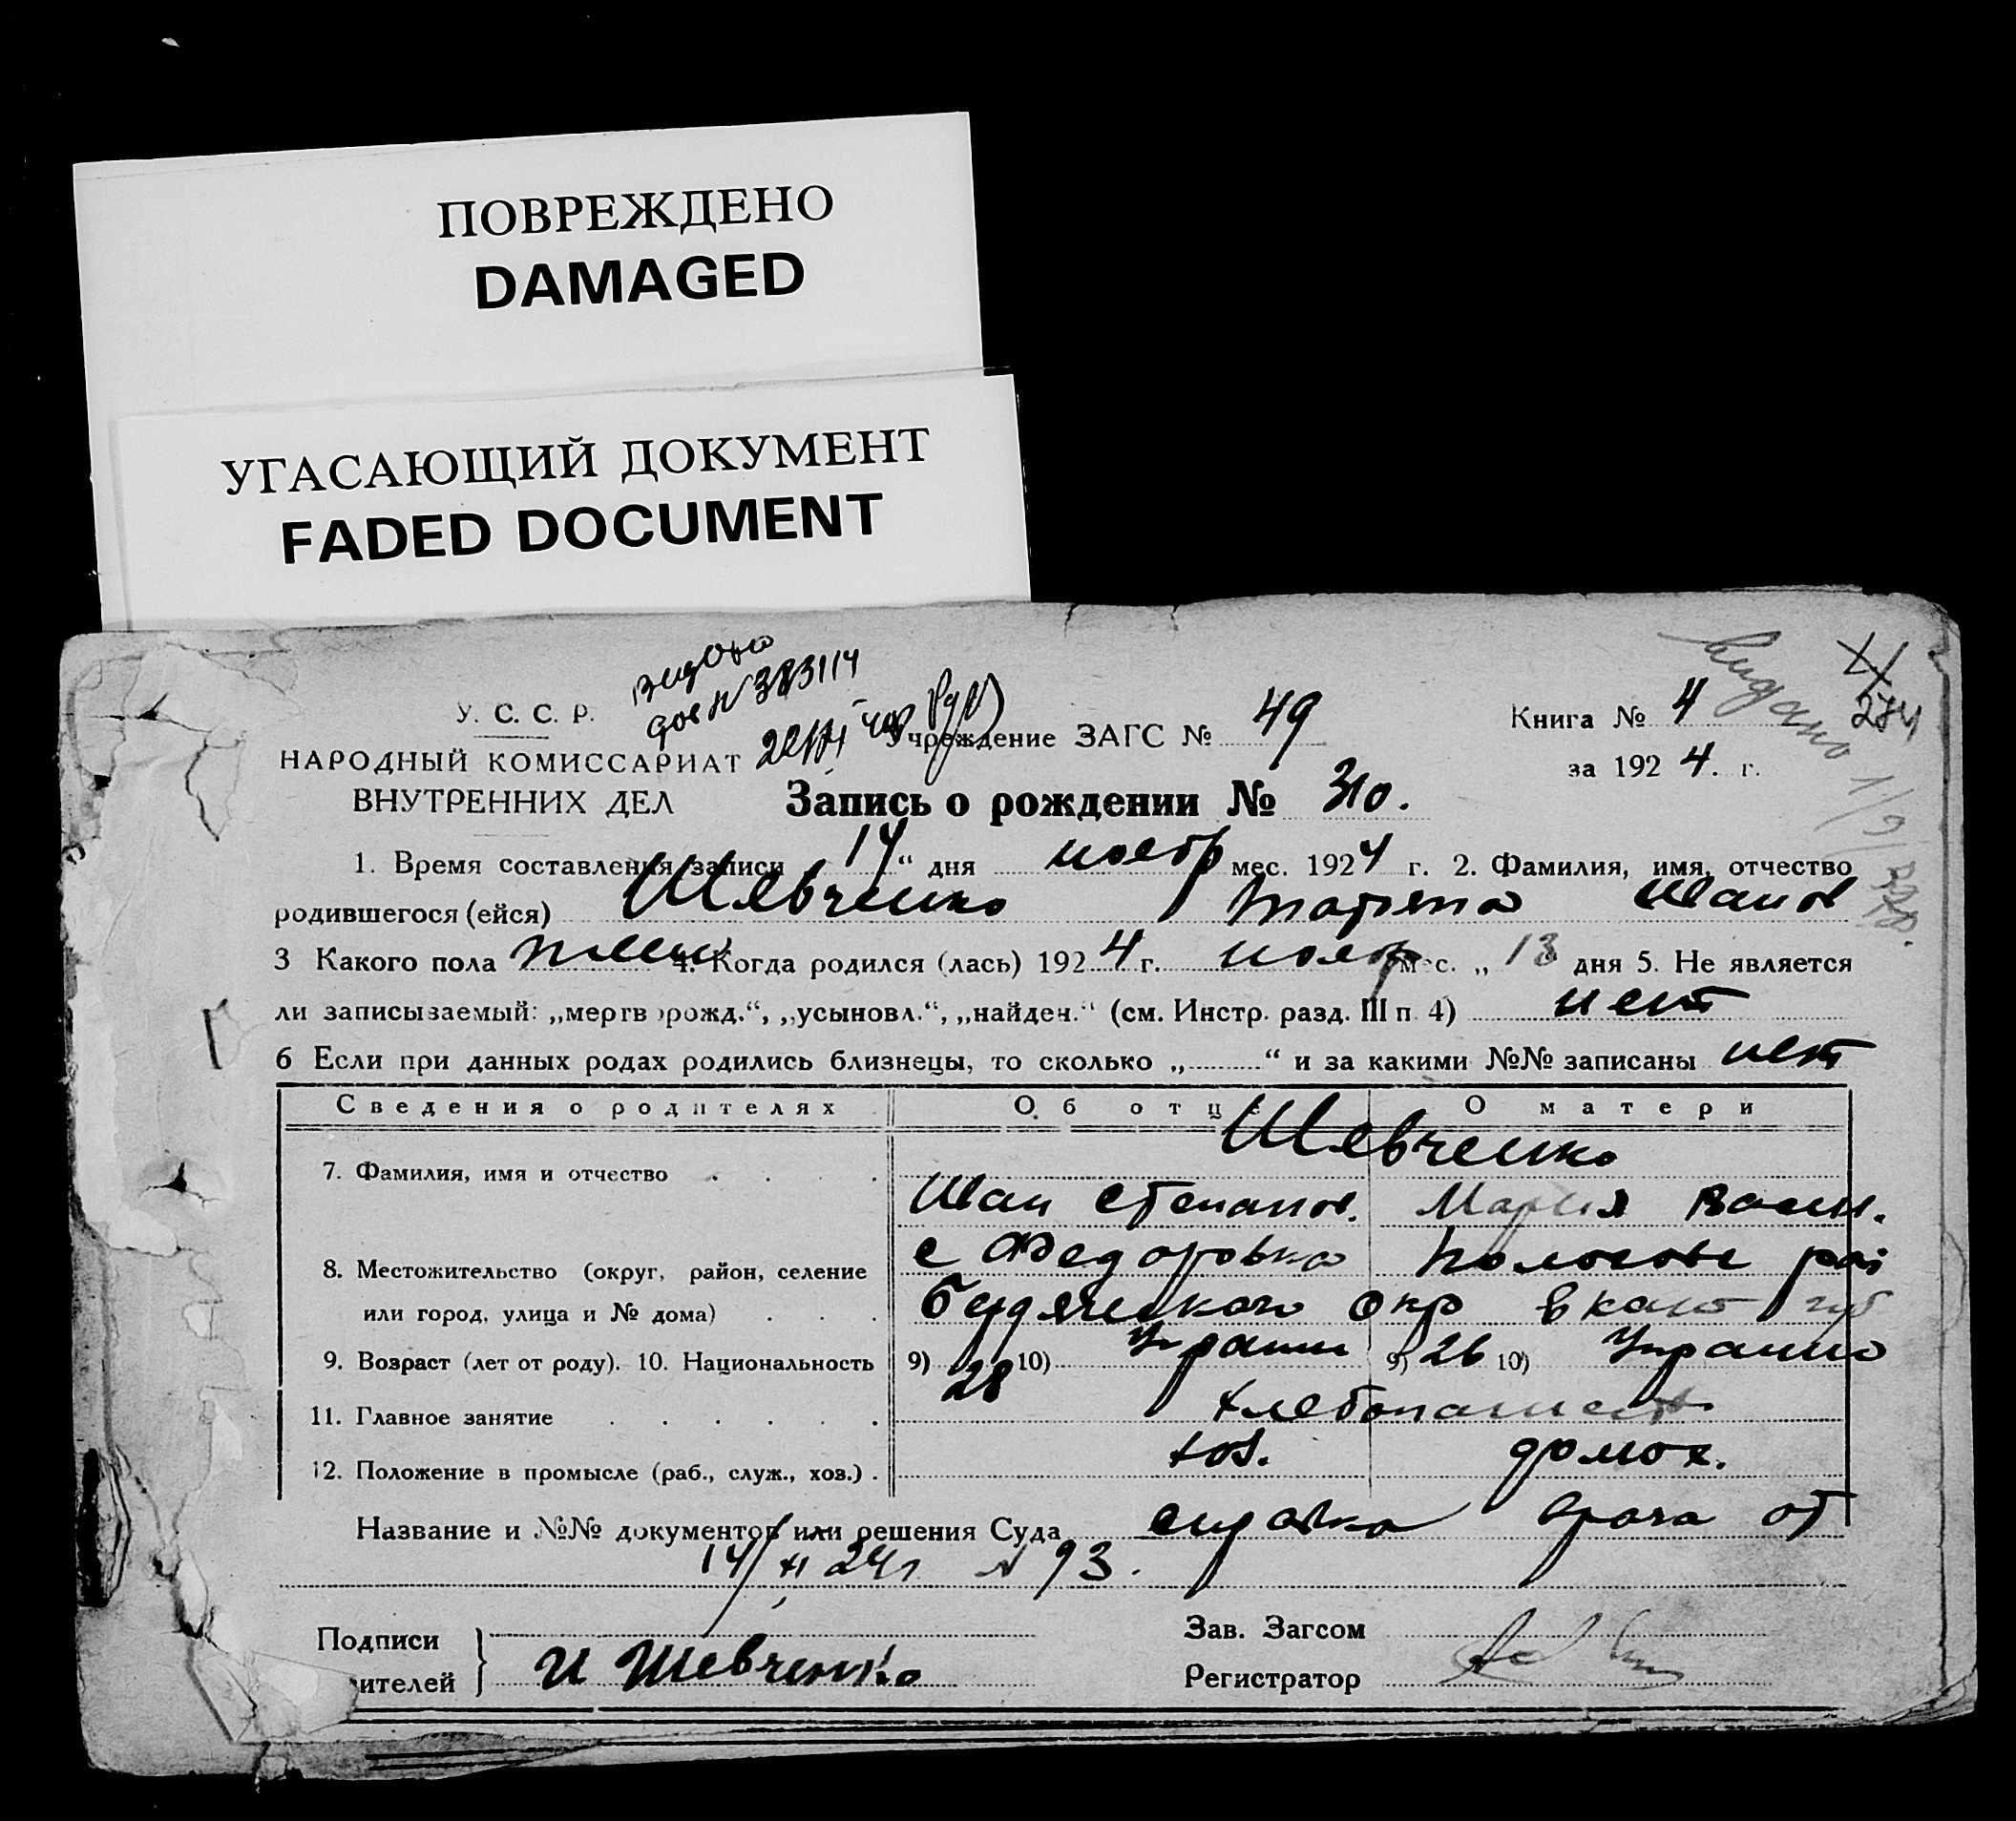 ПОВРЕЖДЕНО
DAMAGED
УГАСАЮЩИЙ ДОКУМЕНТ
FADED DOCUMENT
У. С. С. Р.
НАРОДНЫЙ КОМИССАРИАТ
ВНУТРЕННИХ ДЕЛ
видано
383114
Учреждение ЗАГС № 49
Книга № 4
за 1924. г.
видано
Запись о рождении № 310.
1. Время составления записи 14 “ дня ноябр мес. 1924 г. 2. Фамилия, имя, отчество
родившегося (ейся) Шевченко Татяна Иванов
3 Какого пола жен 4. Когда родился (лась) 1924 г. ноябр мес. „ 13 дня 5. Не является
ли записываемый: „мертворожд.“, „усыновл.“, „найден.“ (см. Инстр. разд. III п 4) нет
6 Если при данных родах родились близнецы, то сколько „ “ и за какими №№ записаны нет
Сведения о родителях Об отце О матери
Шевченко
7. Фамилия, имя и отчество Иван Степанов. Мария Васил.
8. Местожительство (округ, район, селение с Федоровка Пологовс рай
или город, улица и № дома) Бердянского окр Екат губ
9. Возраст (лет от роду). 10. Национальность 9) 28 10) Украин 9) 26 10) Украино
11. Главное занятие хлебопашест
12. Положение в промысле (раб., служ., хоз.) хоз. домох.
Название и №№ документов или решения Суда справка врача от
14/XI 24 г N 93.
Подписи
ителей И Шевченко
Зав. Загсом
Регистратор